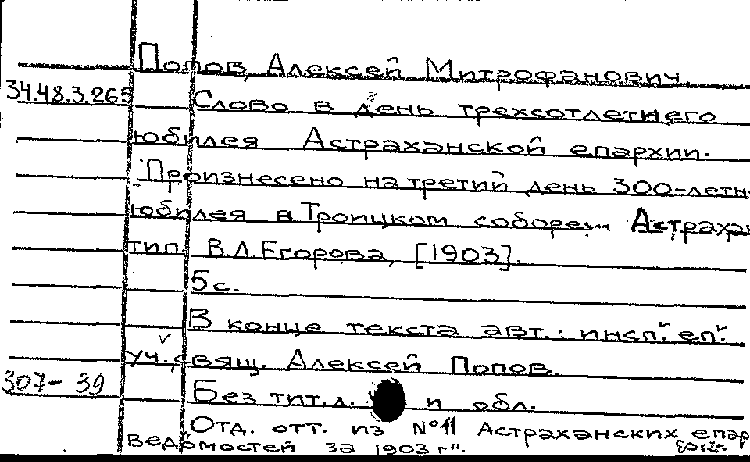 Попов, Алексей Митрофанович
34.48.3.265
Слово в день трехсотлетнего
юбилея Астраханской епархии.
"Произнесено на третий день 300-летн
юбилея в Троицком соборе". Астрахан
тип. В.Л.Егорова, [1903].
5с.
В конце текста авт.: инсп. еп.
уч., свящ. Алексей Попов.
307-39
Без тит.л. и обл.
Отд. отт. из №11 Астраханских епар
ведомостей за 1903 г".